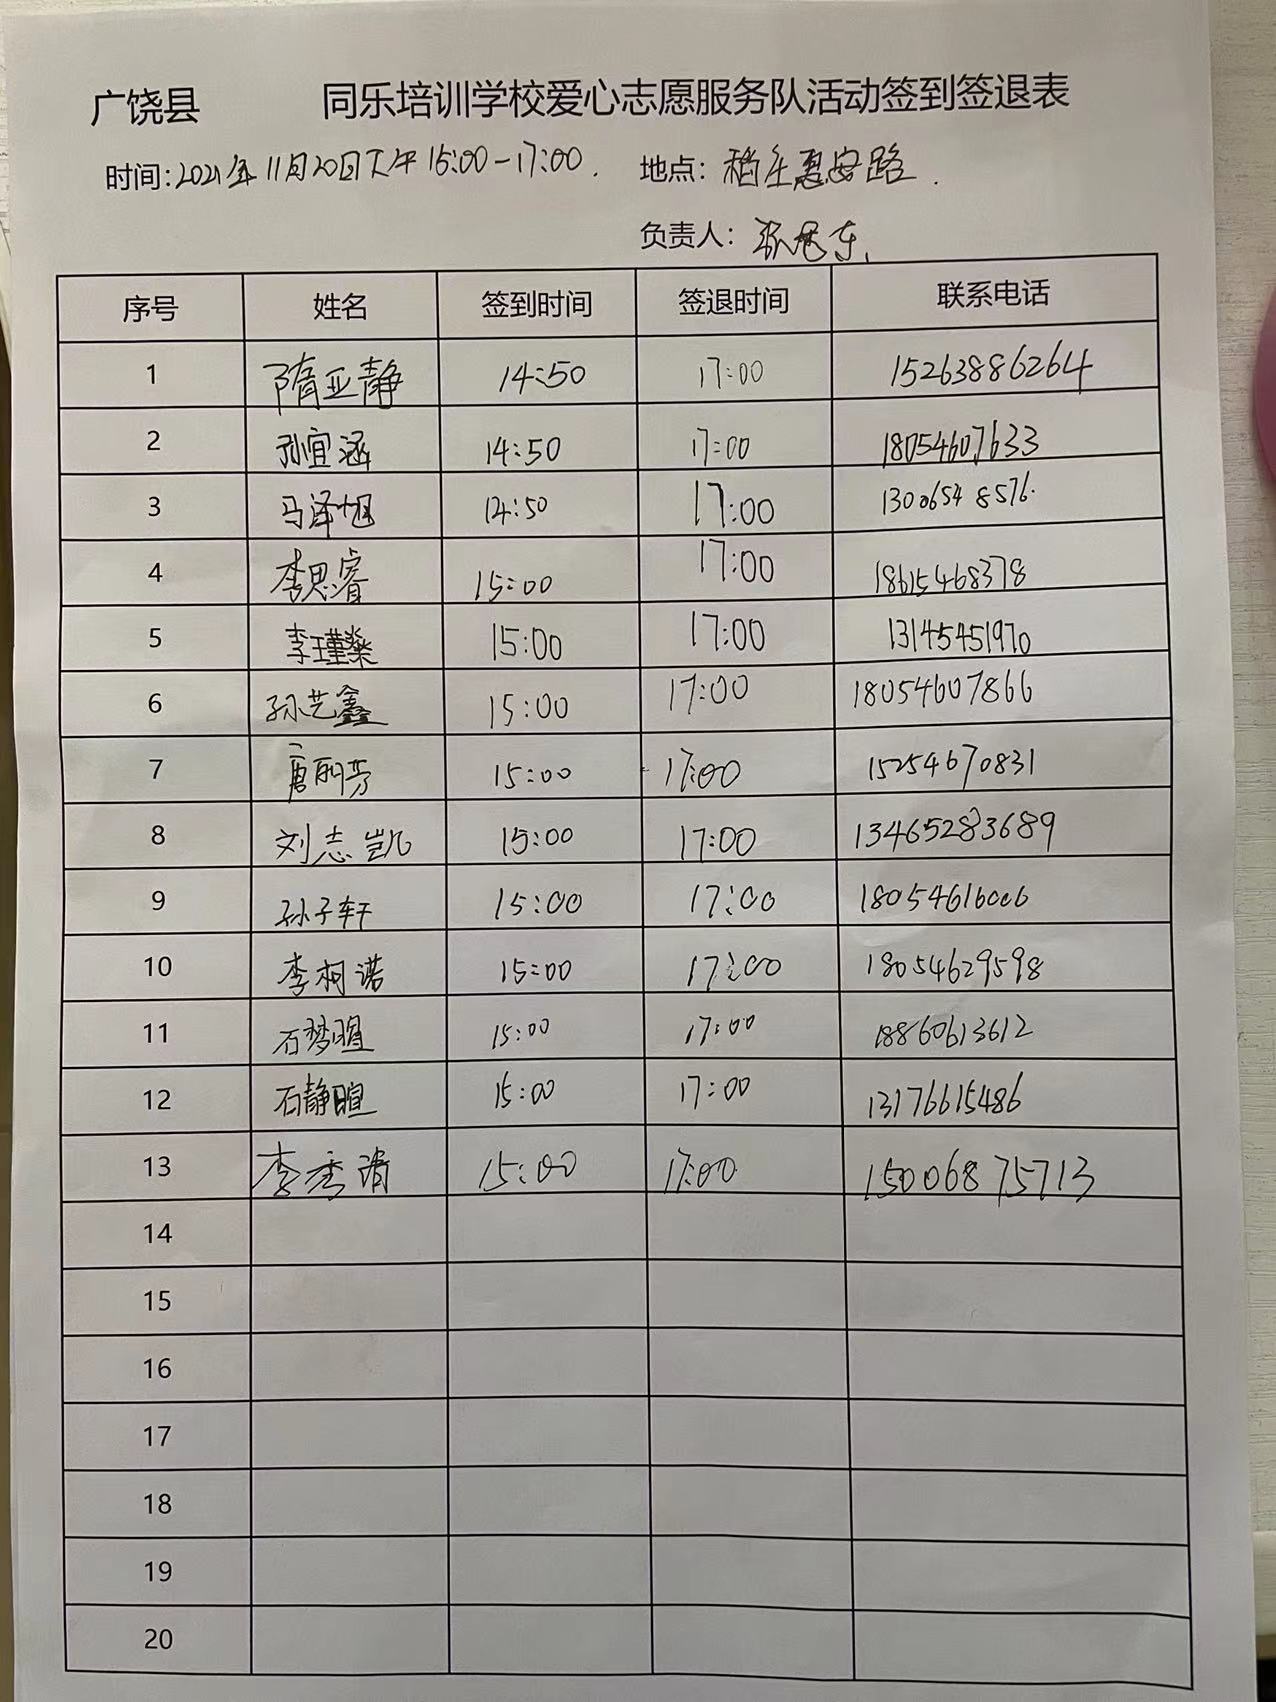 广饶县 同乐培训学校爱心志愿服务队活动签到签退表
时间:2021年11月20日下午15:00-17:00. 地点:稻庄惠安路.
负责人:
序号 姓名 签到时间 签退时间 联系电话
1 隋亚静 14:50 17:00 15263886264
2 孙宜涵 14:50 17:00 18054607633
3 马泽旭 14:50 17:00 13006548576.
4 李思睿 15:00 17:00 18615468378
5 李瑾燊 15:00 17:00 13145451970
6 孙艺鑫 15:00 17:00 18054607866
7 唐丽芳 15:00 17:00 15254670831
8 刘志凯 15:00 17:00 13465283689
9 孙子轩 15:00 17:00 18054616006
10 李柯诺 15:00 17:00 18054629598
11 石梦暄 15:00 17:00 18860613612
12 石静暄 15:00 17:00 13176615486
13 李秀清 15:00 17:00 15006875713
14
15
16
17
18
19
20